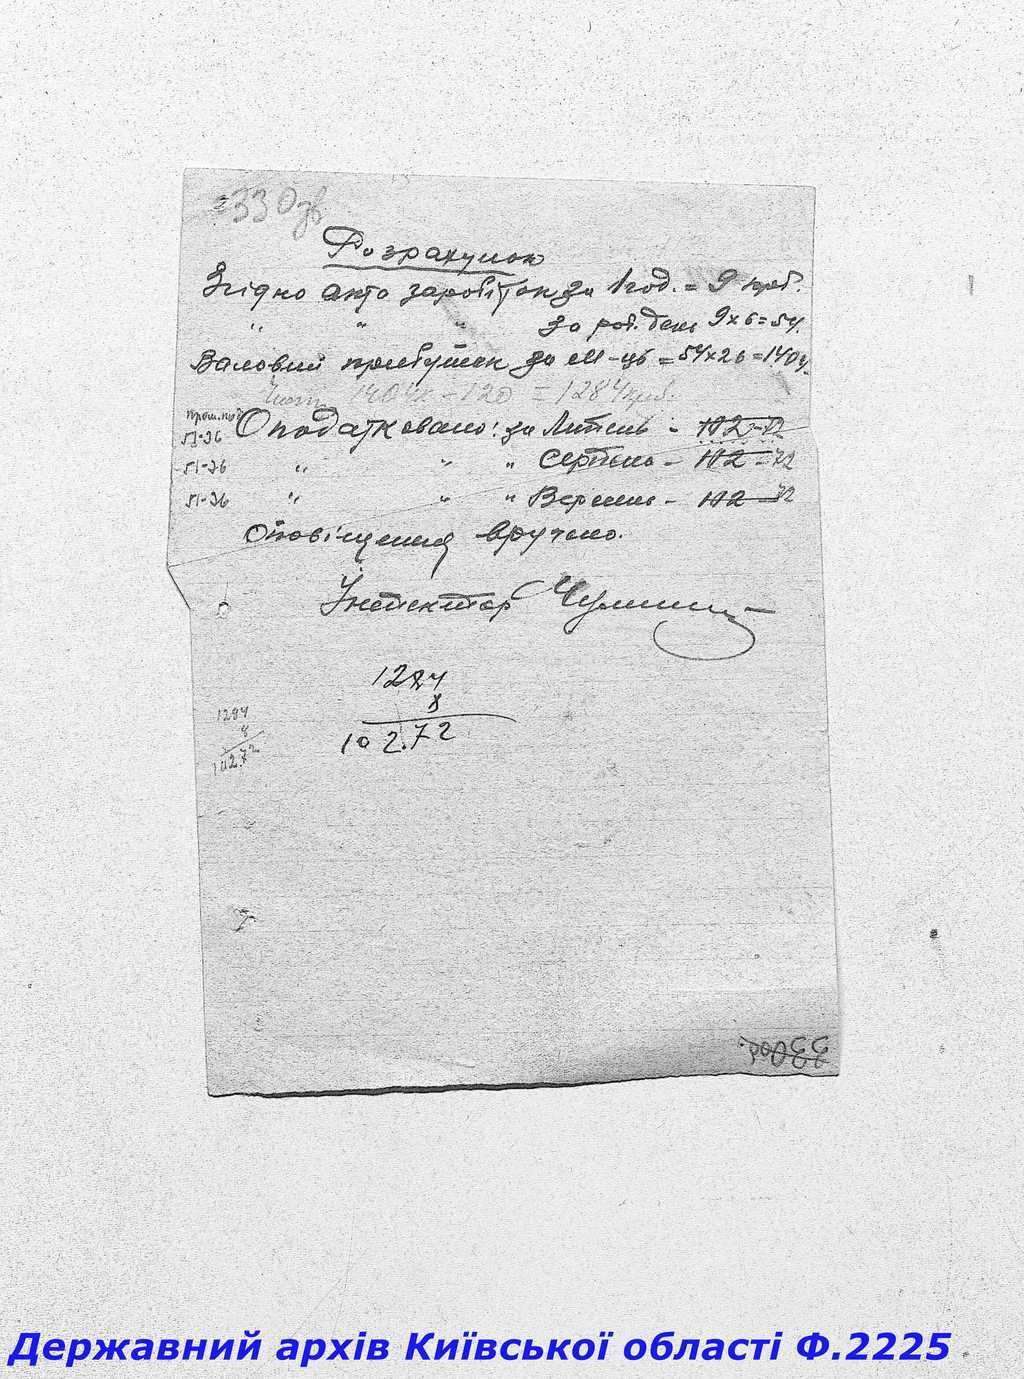 330зв
Розрахунок
Згідно акту заробіток за 1 год. = 9 крб.
" " " за роб. день 9х6=54.
Валовий прибуток за м-ць = 54х26=1404.
Чист. 1404к - 120 = 1284 крб.
51-36 Оподатковано: за Липень - 102-72
51-36 " " " Серпень - 102-72
51-36 " " " Вересень - 102-72
Оповіщення вручено.
Інспектор
1284
8
102.72
1284
8
102.72
330об.
Державний архів Київської області Ф.2225